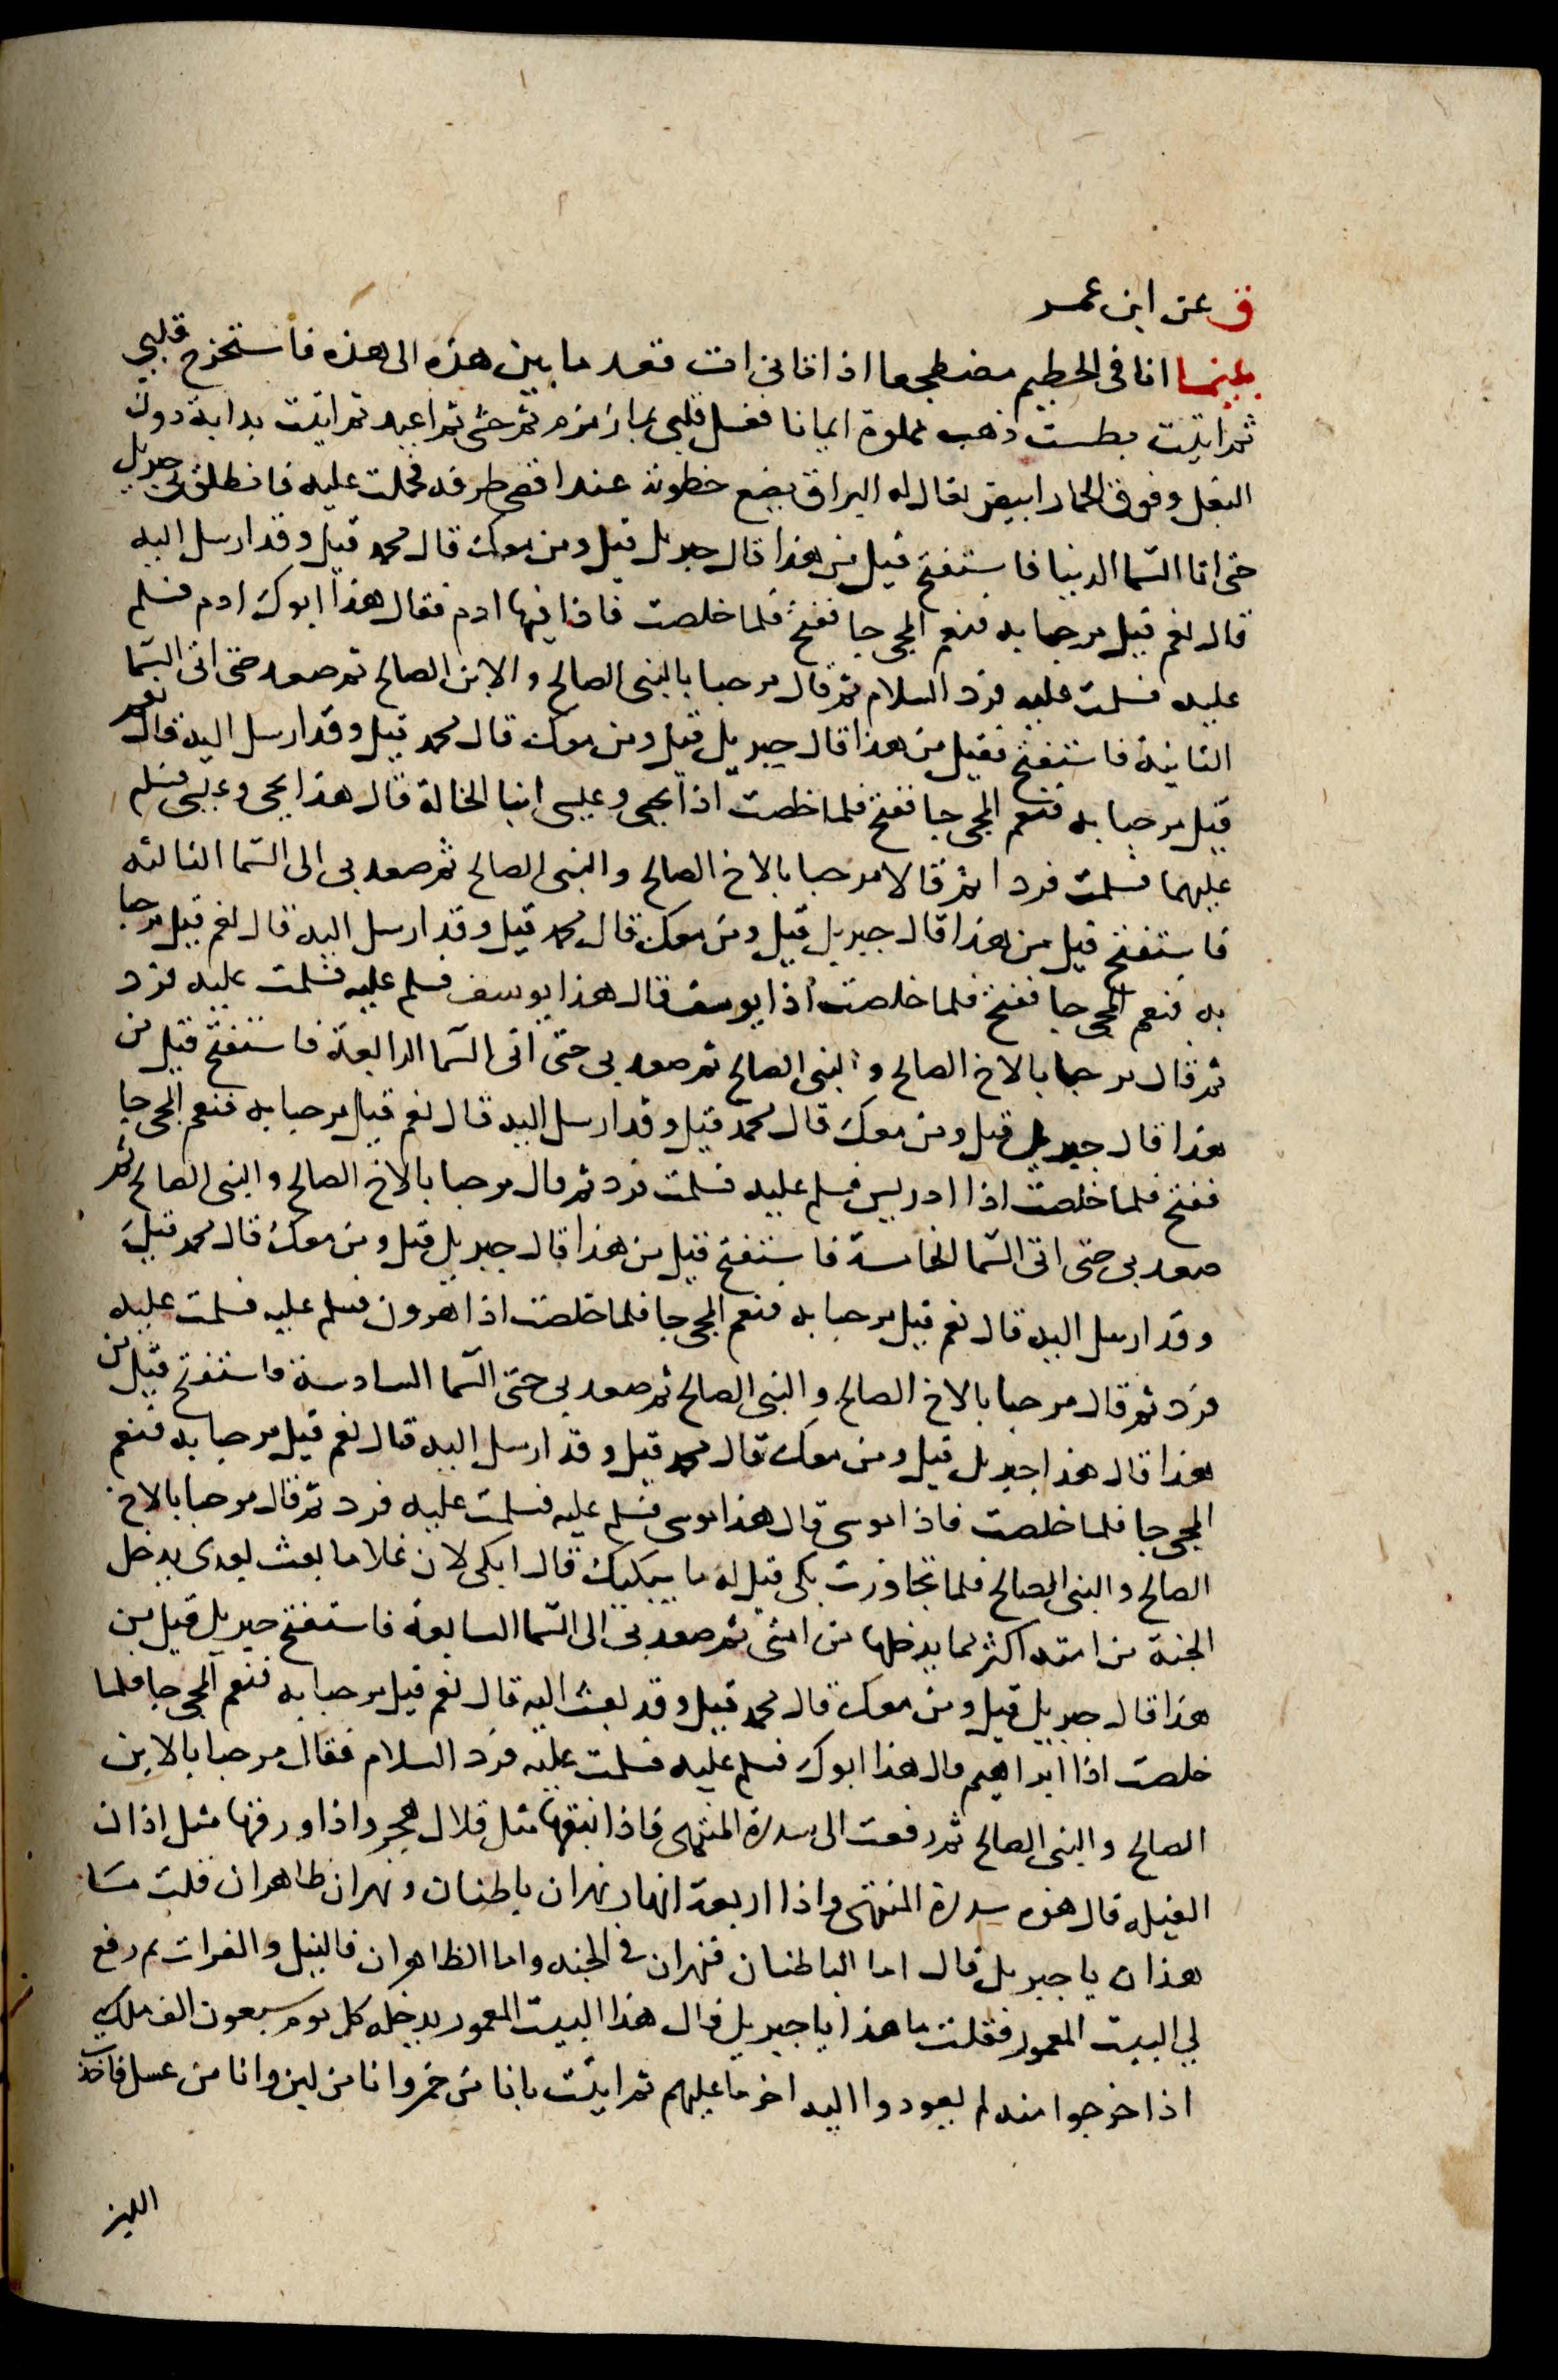 ق عن ابن عمر
بينما انا فى الحطيم مضطجعا اذ اتانى ات فقد ما بين هذه الى هذه فاستخرج قلبى
ثم اتيت بطست ذهب مملوة ايمانا فغسل قلبى بما زمزم ثم حشى ثم اعيد ثم اتيت بدابة دون
البغل وفوق الحمار ابيض يقال له البراق يضع خطوته عند اقصى طرفه فحملت عليه فانطلق بى جبريل
حتى اتا السما الدنيا فاستفتح قيل من هذا قال جبريل قيل ومن معك قال محمد قيل وقد ارسل اليه
قال نعم قيل مرحبا به فنعم المجى جا ففتح فلما خلصت فاذا فيها ادم فقال هذا ابوك ادم فسلم
عليه فسلمت عليه فرد السلام ثم قال مرحبا بالنبى الصالح والابن الصالح ثم صعد حتى اتى السما
الثانية فاستفتح فقيل من هذا قال جبريل قيل ومن معك قال محمد قيل وقد ارسل اليه قال نعم
قيل مرحبا به فنعم المجى جا ففتح فلما خلصت اذا يحيى وعيسى ابنا الخالة قال هذا يحيى وعيسى فسلم
عليهما فسلمت فردا ثم قالا مرحبا بالاخ الصالح والنبى الصالح ثم صعد بى الى السما الثالثه
فاستفتح قيل من هذا قال جبريل قيل ومن معك قال محمد قيل وقد ارسل اليه قال نعم قيل مرحبا
به فنعم المجى جا ففتح فلما خلصت اذا يوسف قال هذا يوسف فسلم عليه فسلمت عليه فرد
ثم قال مرحبا بالاخ الصالح والنبى الصالح ثم صعد بى حتى اتى السما الرابعة فاستفتح قيل من
هذا قال جبريل قيل ومن معك قال محمد قيل وقد ارسل اليه قال نعم قيل مرحبا به فنعم المجى جا
ففتح فلما خلصت اذا ادريس فسلم عليه فسلمت فرد ثم قال مرحبا بالاخ الصالح والنبى الصالح ثم
صعد بى حتى اتى السما الخامسة فاستفتح قيل من هذا قال جبريل قيل ومن معك قال محمد قيل
وقد ارسل اليه قال نعم قيل مرحبا به فنعم المجى جا فلما خلصت اذا هرون فسلم عليه فسلمت عليه
فرد ثم قال مرحبا بالاخ الصالح والنبى الصالح ثم صعد بى حتى السما السادسة فاستفتح قيل من
هذا قال هذا جبريل قيل ومن معك قال محمد قيل وقد ارسل اليه قال نعم قيل مرحبا به فنعم
المجى جا فلما خلصت فاذا موسى قال هذا موسى فسلم عليه فسلمت عليه فرد ثم قال مرحبا بالاخ
الصالح والنبى الصالح فلما تجاوزت بكى قيل له ما يبكيك قال ابكى لان غلاما بعث بعدى يدخل
الجنة من امته اكثر مما يدخلها من امتى ثم صعد بى الى السما السابعة فاستفتح جبريل قيل من
هذا قال جبريل قيل ومن معك قال محمد قيل وقد بعث اليه قال نعم قيل مرحبا به فنعم المجى جا فلما
خلصت اذا ابراهيم قال هذا ابوك فسلم عليه فسلمت عليه فرد السلام فقال مرحبا بالابن
الصالح والنبى الصالح ثم رفعت الى سدرة المنتهى فاذا نبقها مثل قلال هجر واذا ورقها مثل اذان
الفيله قال هذه سدرة المنتهى واذا اربعة انهار نهران باطنان ونهران ظاهران قلت ما
هذان يا جبريل قال اما الباطنان فنهران فى الجنه واما الظاهران فالنيل والفرات ثم رفع
لي البيت المعمور فقلت ما هذا يا جبريل قال هذا البيت المعمور يدخله كل يوم سبعون الف ملك
اذا خرجوا منه لم يعودوا اليه اخر ما عليهم ثم اتيت بانا من خمر وانا من لبن وانا من عسل فاخذت
اللبن